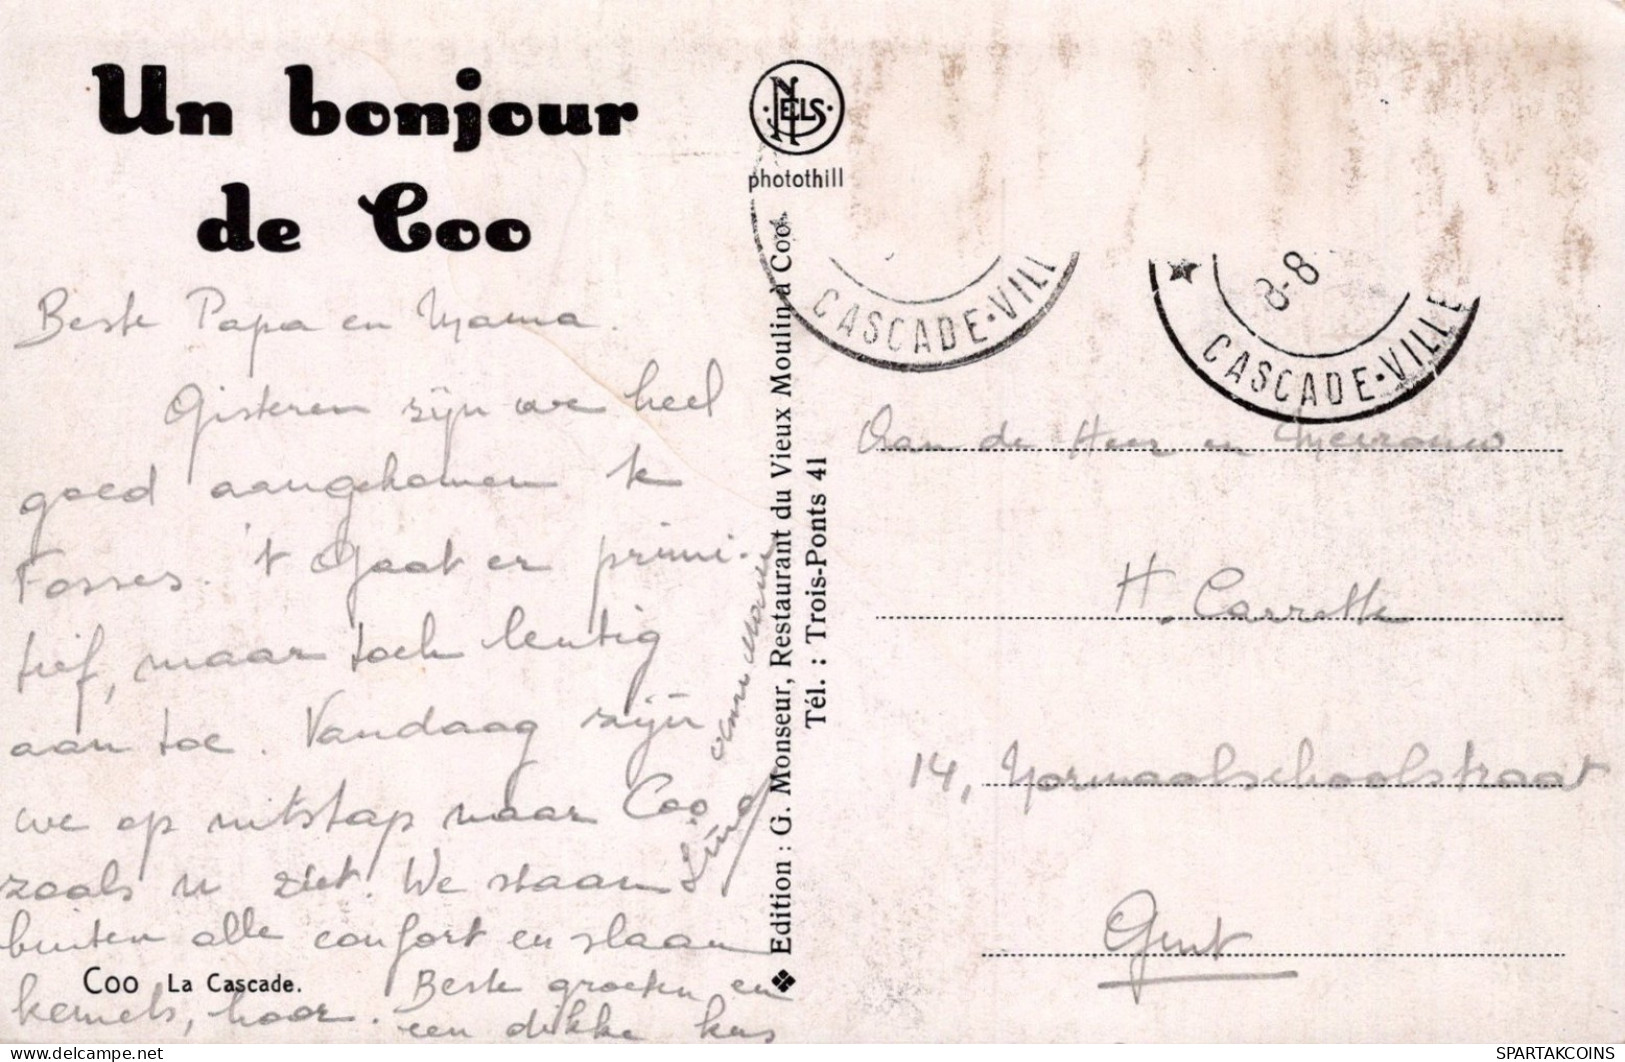 Un bonjour
de Coo
Beste Papa en Mama.
Gisteren zijn we heel
goed aangekomen te
Fosses. 't Gaat er primi-
tief, maar toch leutig
aan toe. Vandaag zijn
we op uitstap naar Coo
zoals u ziet. We staan
buiten alle confort en slaan
kemels, hoor. Beste groeten en
een dikke kus
Coo La Cascade.
NELS
photothill
Edition : G. Monseur, Restaurant du Vieux Moulin à Coo.
Tél. : Trois-Ponts 41
CASCADE-VILL
8-8
CASCADE-VILLE
Aan de Heer en Mevrouw
H. Carrette
14, Normaalschoolstraat
Gent
delcampe.net
SPARTAKCOINS